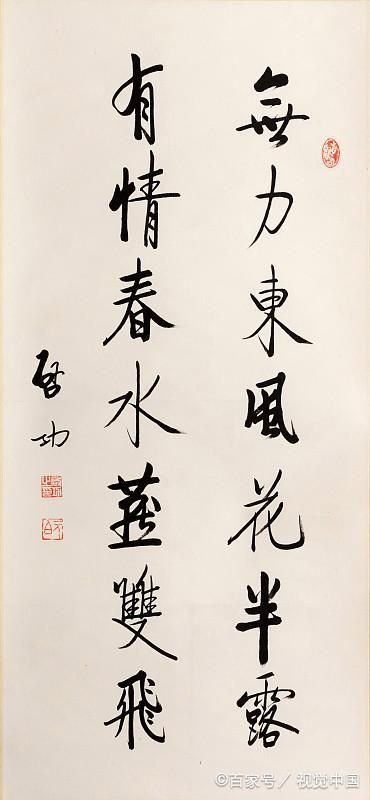 無力東風花半露
有情春水燕雙飛
启功
©百家号／视觉中国